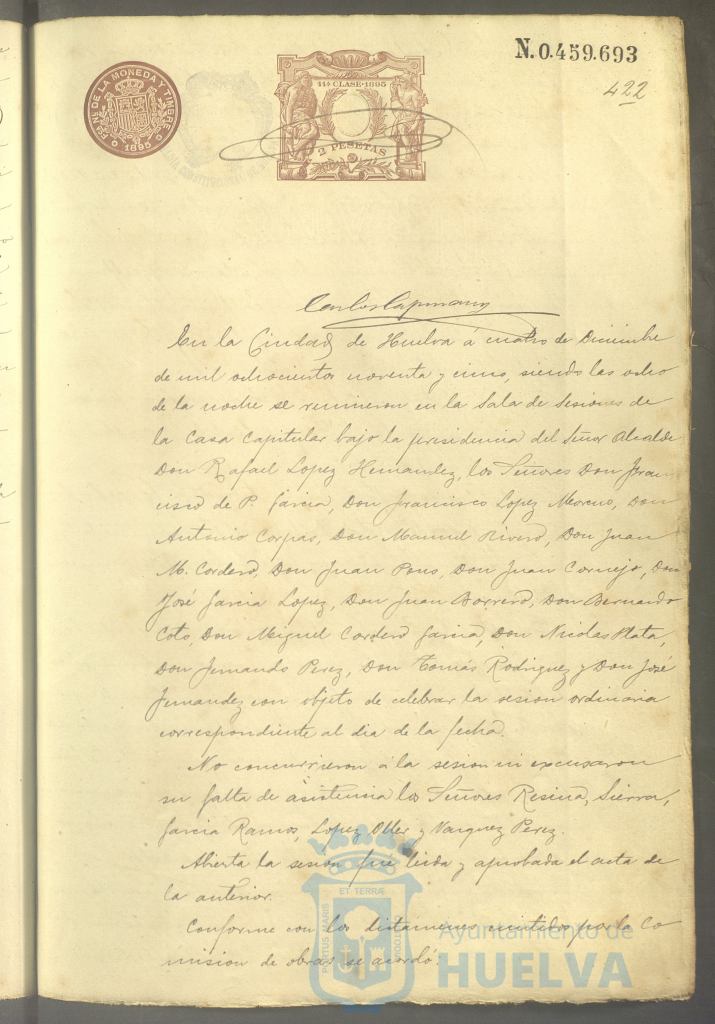 N. 0.459.693
422
Fca. Nal. DE LA MONEDA Y TIMBRE
1895
11ª CLASE-1895
2 PESETAS
Carlos Capmany
En la Ciudad de Huelva á cuatro de Diciembre
de mil ochocientos noventa y cinco, siendo las ocho
de la noche se reunieron en la Sala de Sesiones de
la Casa Capitular bajo la presidencia del Señor Alcalde
Don Rafael Lopez Hernandez, los Señores Don Fran
cisco de P. Garcia, Don Francisco Lopez Moreno, Don
Antonio Corpas, Don Manuel Rivero, Don Juan
M. Cordero, Don Juan Pons, Don Juan Cornejo, Don
José Garcia Lopez, Don Juan Borrero, Don Bernardo
Coto, Don Miguel Cordero Garcia, Don Nicolas Plata,
Don Fernando Perez, Don Tomás Rodriguez y Don José
Fernandez con objeto de celebrar la sesion ordinaria
correspondiente al dia de la fecha.
No concurrieron á la sesion ni excusaron
su falta de asistencia los Señores Resina, Sierra,
Garcia Ramos, Lopez Oller y Vazquez Perez.
Abierta la sesion fué leida y aprobada el acta de
la anterior.
Conforme con los dictámenes emitidos por la Co
mision de obras se acordó:
PORTUS MARIS
ET TERRÆ
CUSTODIA
Ayuntamiento de
HUELVA